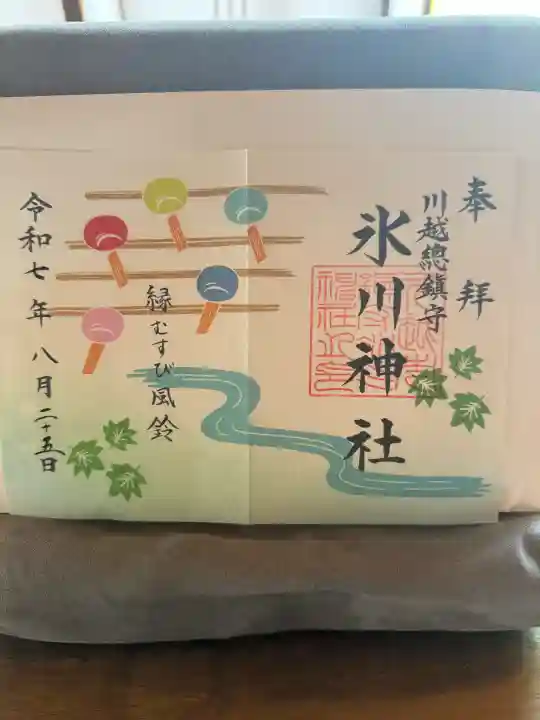 奉拝
川越總鎮守
氷川神社
縁むすび風鈴
令和七年八月二十五日